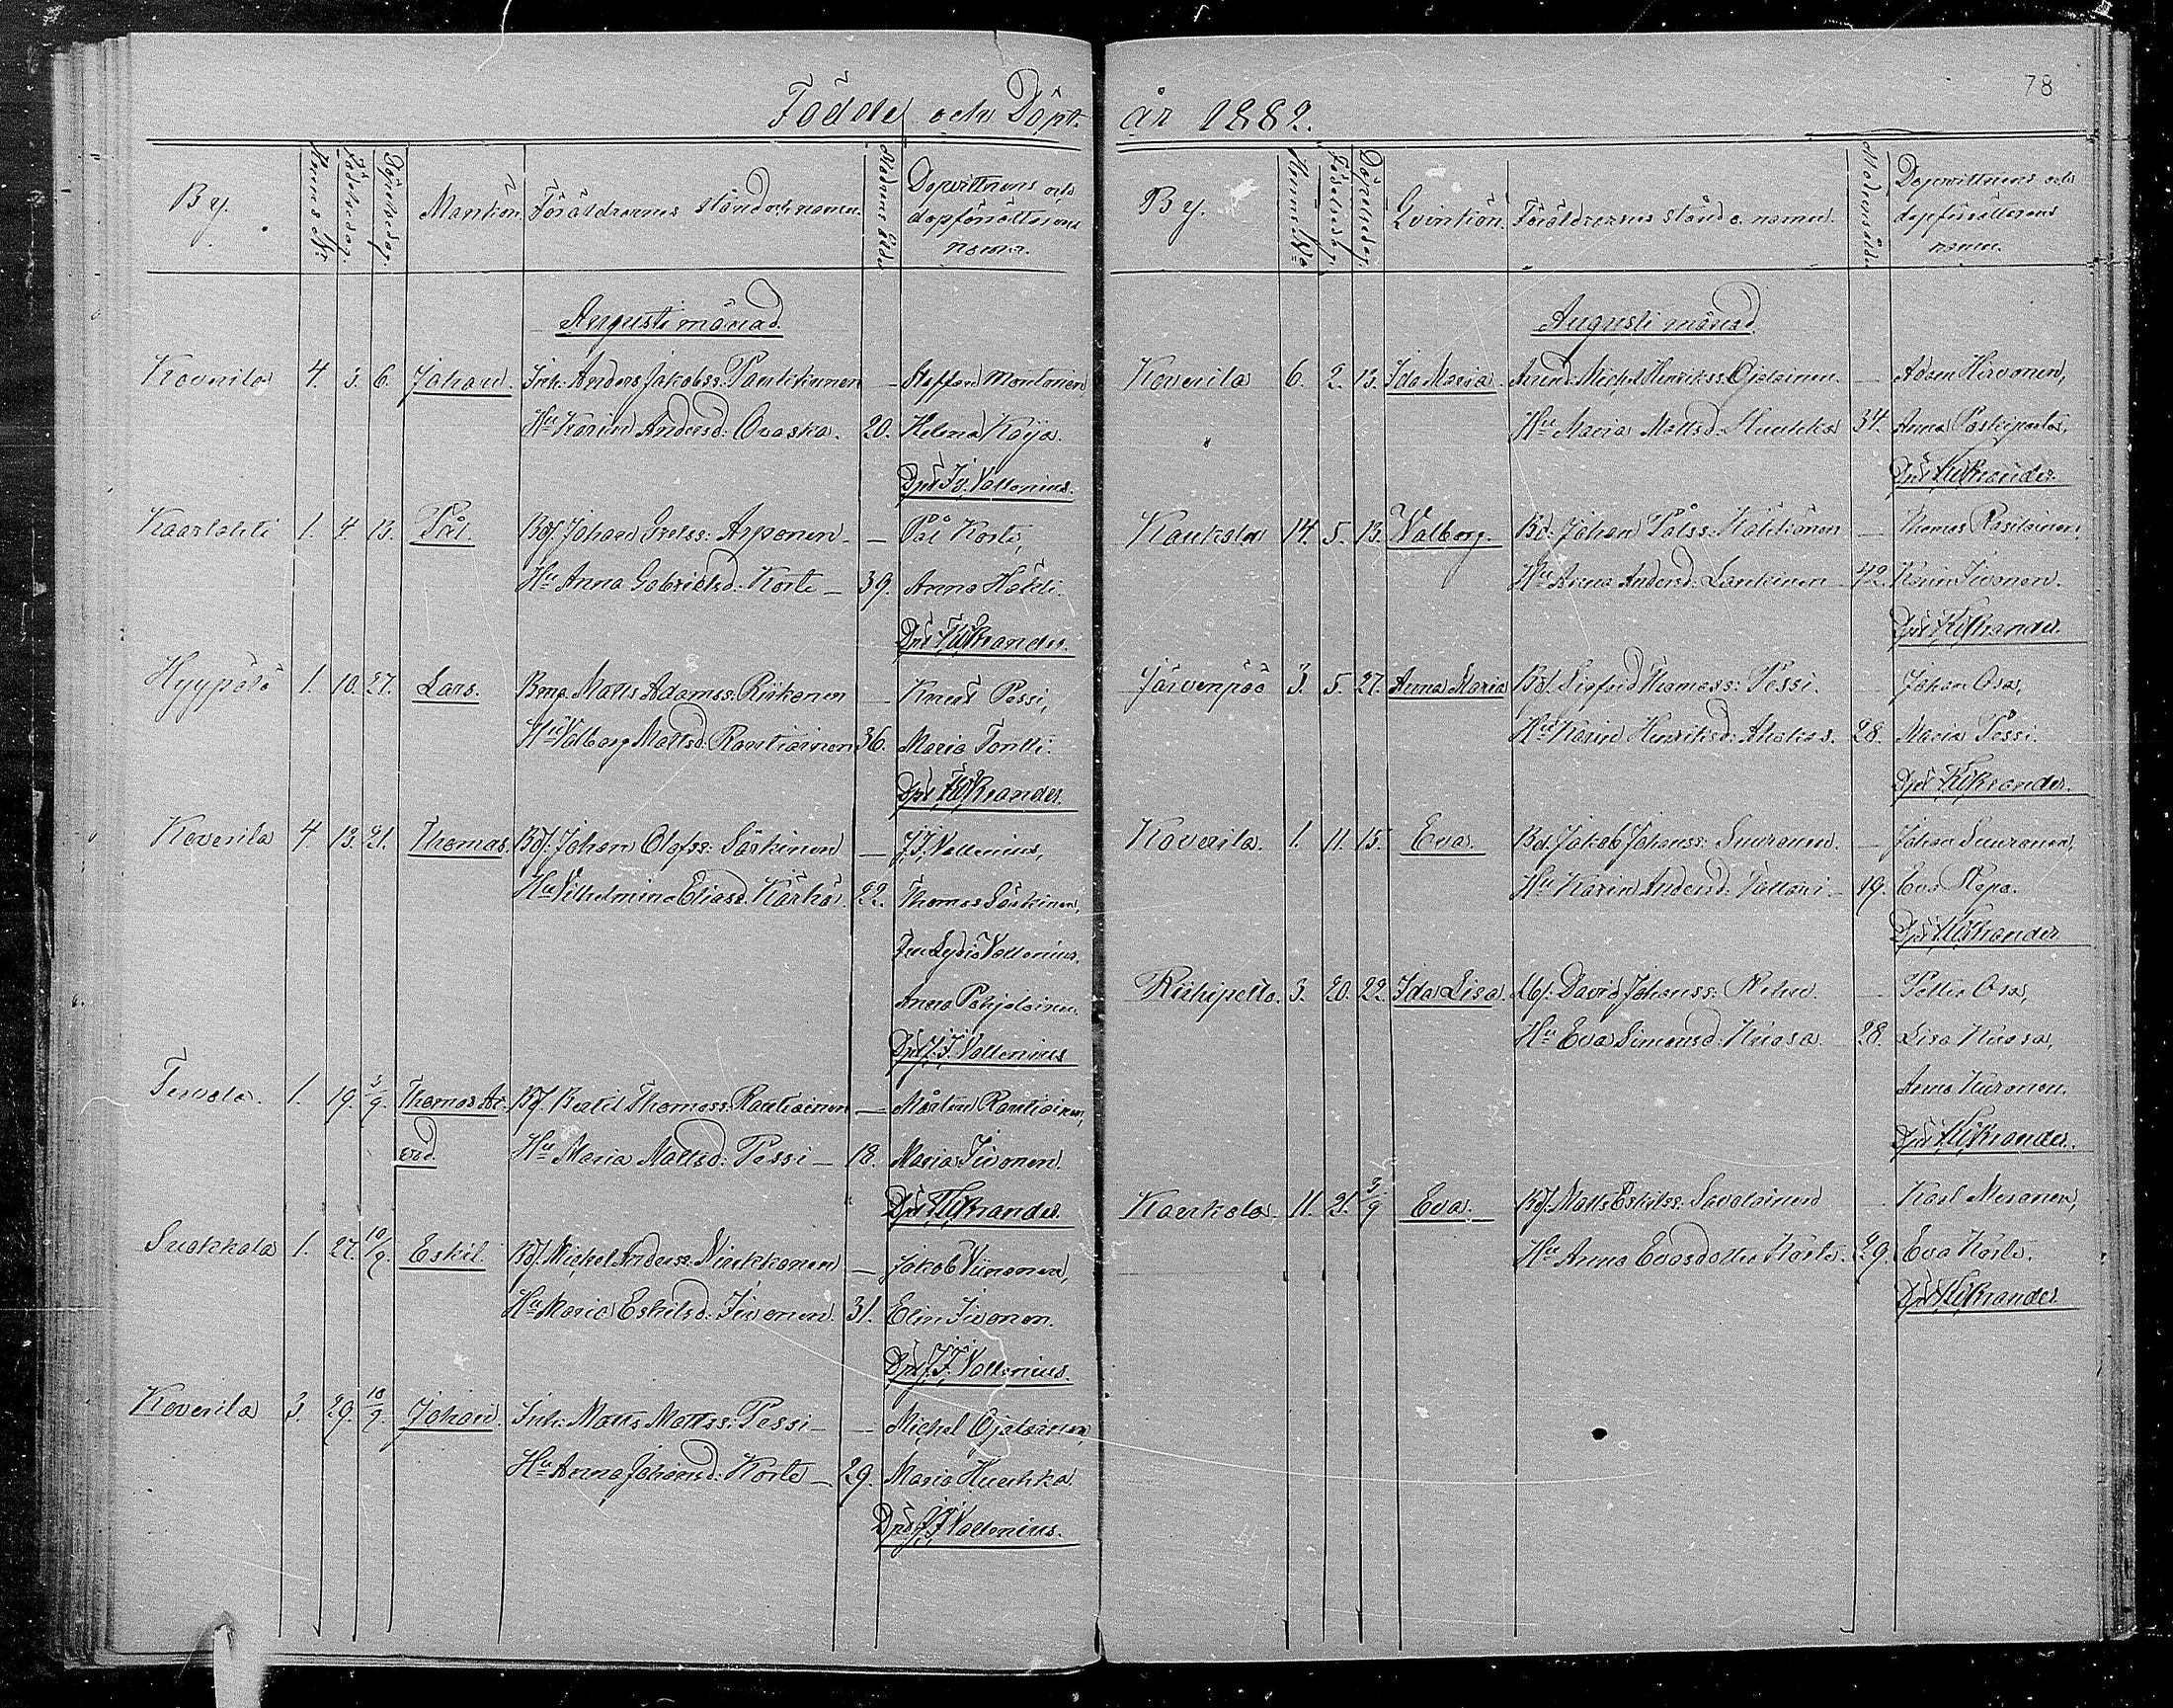 Födde och Döpt.
By.
Hemms Nr
Födelsedag.
Döpelsedag.
Mankön.
Föräldrarnes stånd och namn.
Modrens ålder
Dopvittnens och
dopförrättarens
namn.
Augusti månad.
Koverila 4. 3. 6. Johan. Inh. Anders Jakobss: Pantikunen — Staffan Montonen,
Hu Karin Andersd: Ovaska. 20. Helena Käyö.
Dpt J. J. Vallenius.
Kaarlahti 1. 4. 13. Pål. Bdf. Johan Grelss: Arponen — Pål Korte,
Hu Anna Gabrielsd: Korte — 39. Anna Häkli.
Dpt K. W. Krander.
Hyypölö 1. 10. 27. Lars. Bong Matts Adamss: Riikonen — Knut Pessi,
Hu Valborg Mattsd: Rautiainen 36. Maria Tontti.
Dpt K. W. Krander.
Koverila 4. 13. 21. Thomas. Bdf. Johan Olofss: Säskinen — J. J. Vallenius,
Hu Vilhelmina Eliasd: Kärhä. 22. Thomas Säskinen,
Fru Lydia Vallenius,
Anna Pohjolainen.
Dpt J. J. Vallenius
Tervola. 1. 19. 3/9. Thomas Ar- Bdf. Bertil Thomass: Rautiainen — Mårten Rautiainen,
vid. Hu Maria Mattsd: Pessi — 18. Maria Iivonen.
Dpt K. W. Krander.
Suokkala 1. 27. 10/9. Eskil. Bdf. Michel Anderss: Niukkanen — Jakob Viinanen,
Hu Maria Eskilsd: Iivonen. 31. Elin Iivonen.
Dpt J. J. Vallenius.
Koverila 3. 29. 10/9. Johan. Inh: Matts Mattss: Pessi — Michel Ojalainen,
Hu Anna Johansd: Korte — 29. Maria Huuhka.
Dpt J. J. Vallenius.
78
år 1882.
By.
Hemms No
Födelsedag.
Döpelsedag.
Qvinkön.
Föräldrarnes stånd o. namn.
Modrens ålder
Dopvittnens och
dopförrättarens
namn.
Augusti månad.
Koverila 6. 2. 13. Ida Maria. Arrend. Michel Henrikss: Ojalainen. — Adam Hirvonen,
Hu Maria Mattsd: Huuhka 34. Anna Paskiparta.
Dpt K. W. Krander.
Kaukola 14. 5. 13. Valborg. Bd. Johan Pålss: Häkkänen — Thomas Rasilainen,
Hu Anna Andersd: Lankinen 42. Karin Iivonen.
Dpt K. W. Krander.
Järvenpää 3. 5. 27. Anna Maria Bdf. Sigfrid Thomass: Pessi. — Johan Oras,
Hu Karin Henriksd: Ahokas. 28. Maria Pessi.
Dpt K. W. Krander.
Koverila. 1. 11. 15. Eva. Bd. Jakob Johanss: Suuronen. — Johan Suuronen,
Hu Karin Andersd: Vallari — 19. Eva Repo.
Dpt K. W. Krander
Riihipelto. 3. 20. 22. Ida Lisa. Mbf. David Johanss: Rehn. — Petter Oras,
Hu Eva Simonsd: Kuosa — 28. Lisa Kuosa,
Anna Kuronen.
Dpt K. W. Krander.
Kaukola 11. 21. 3/9 Eva. Bdf. Matts Eskilss: Savolainen Karl Mesanen,
Hu Anna Evasdotter Korte. 29. Eva Korte.
Dpt K. W. Krander.